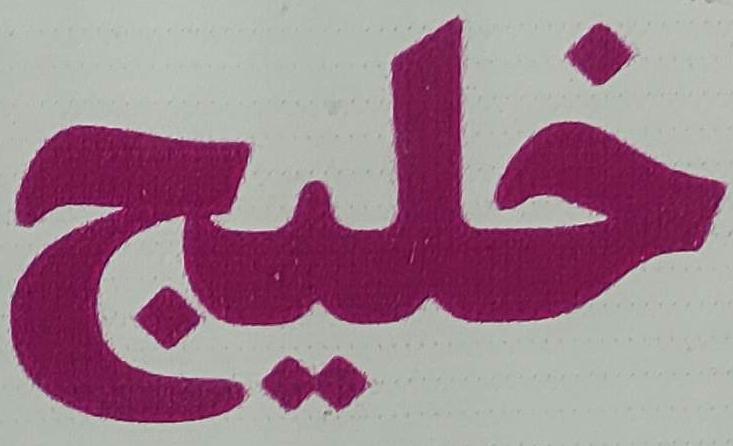 خليج